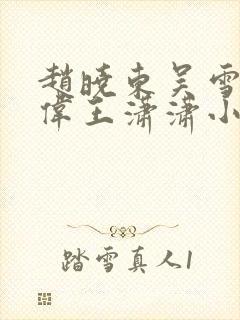 趙曉東吳雪
偉王瀟瀟小
踏雪真人1